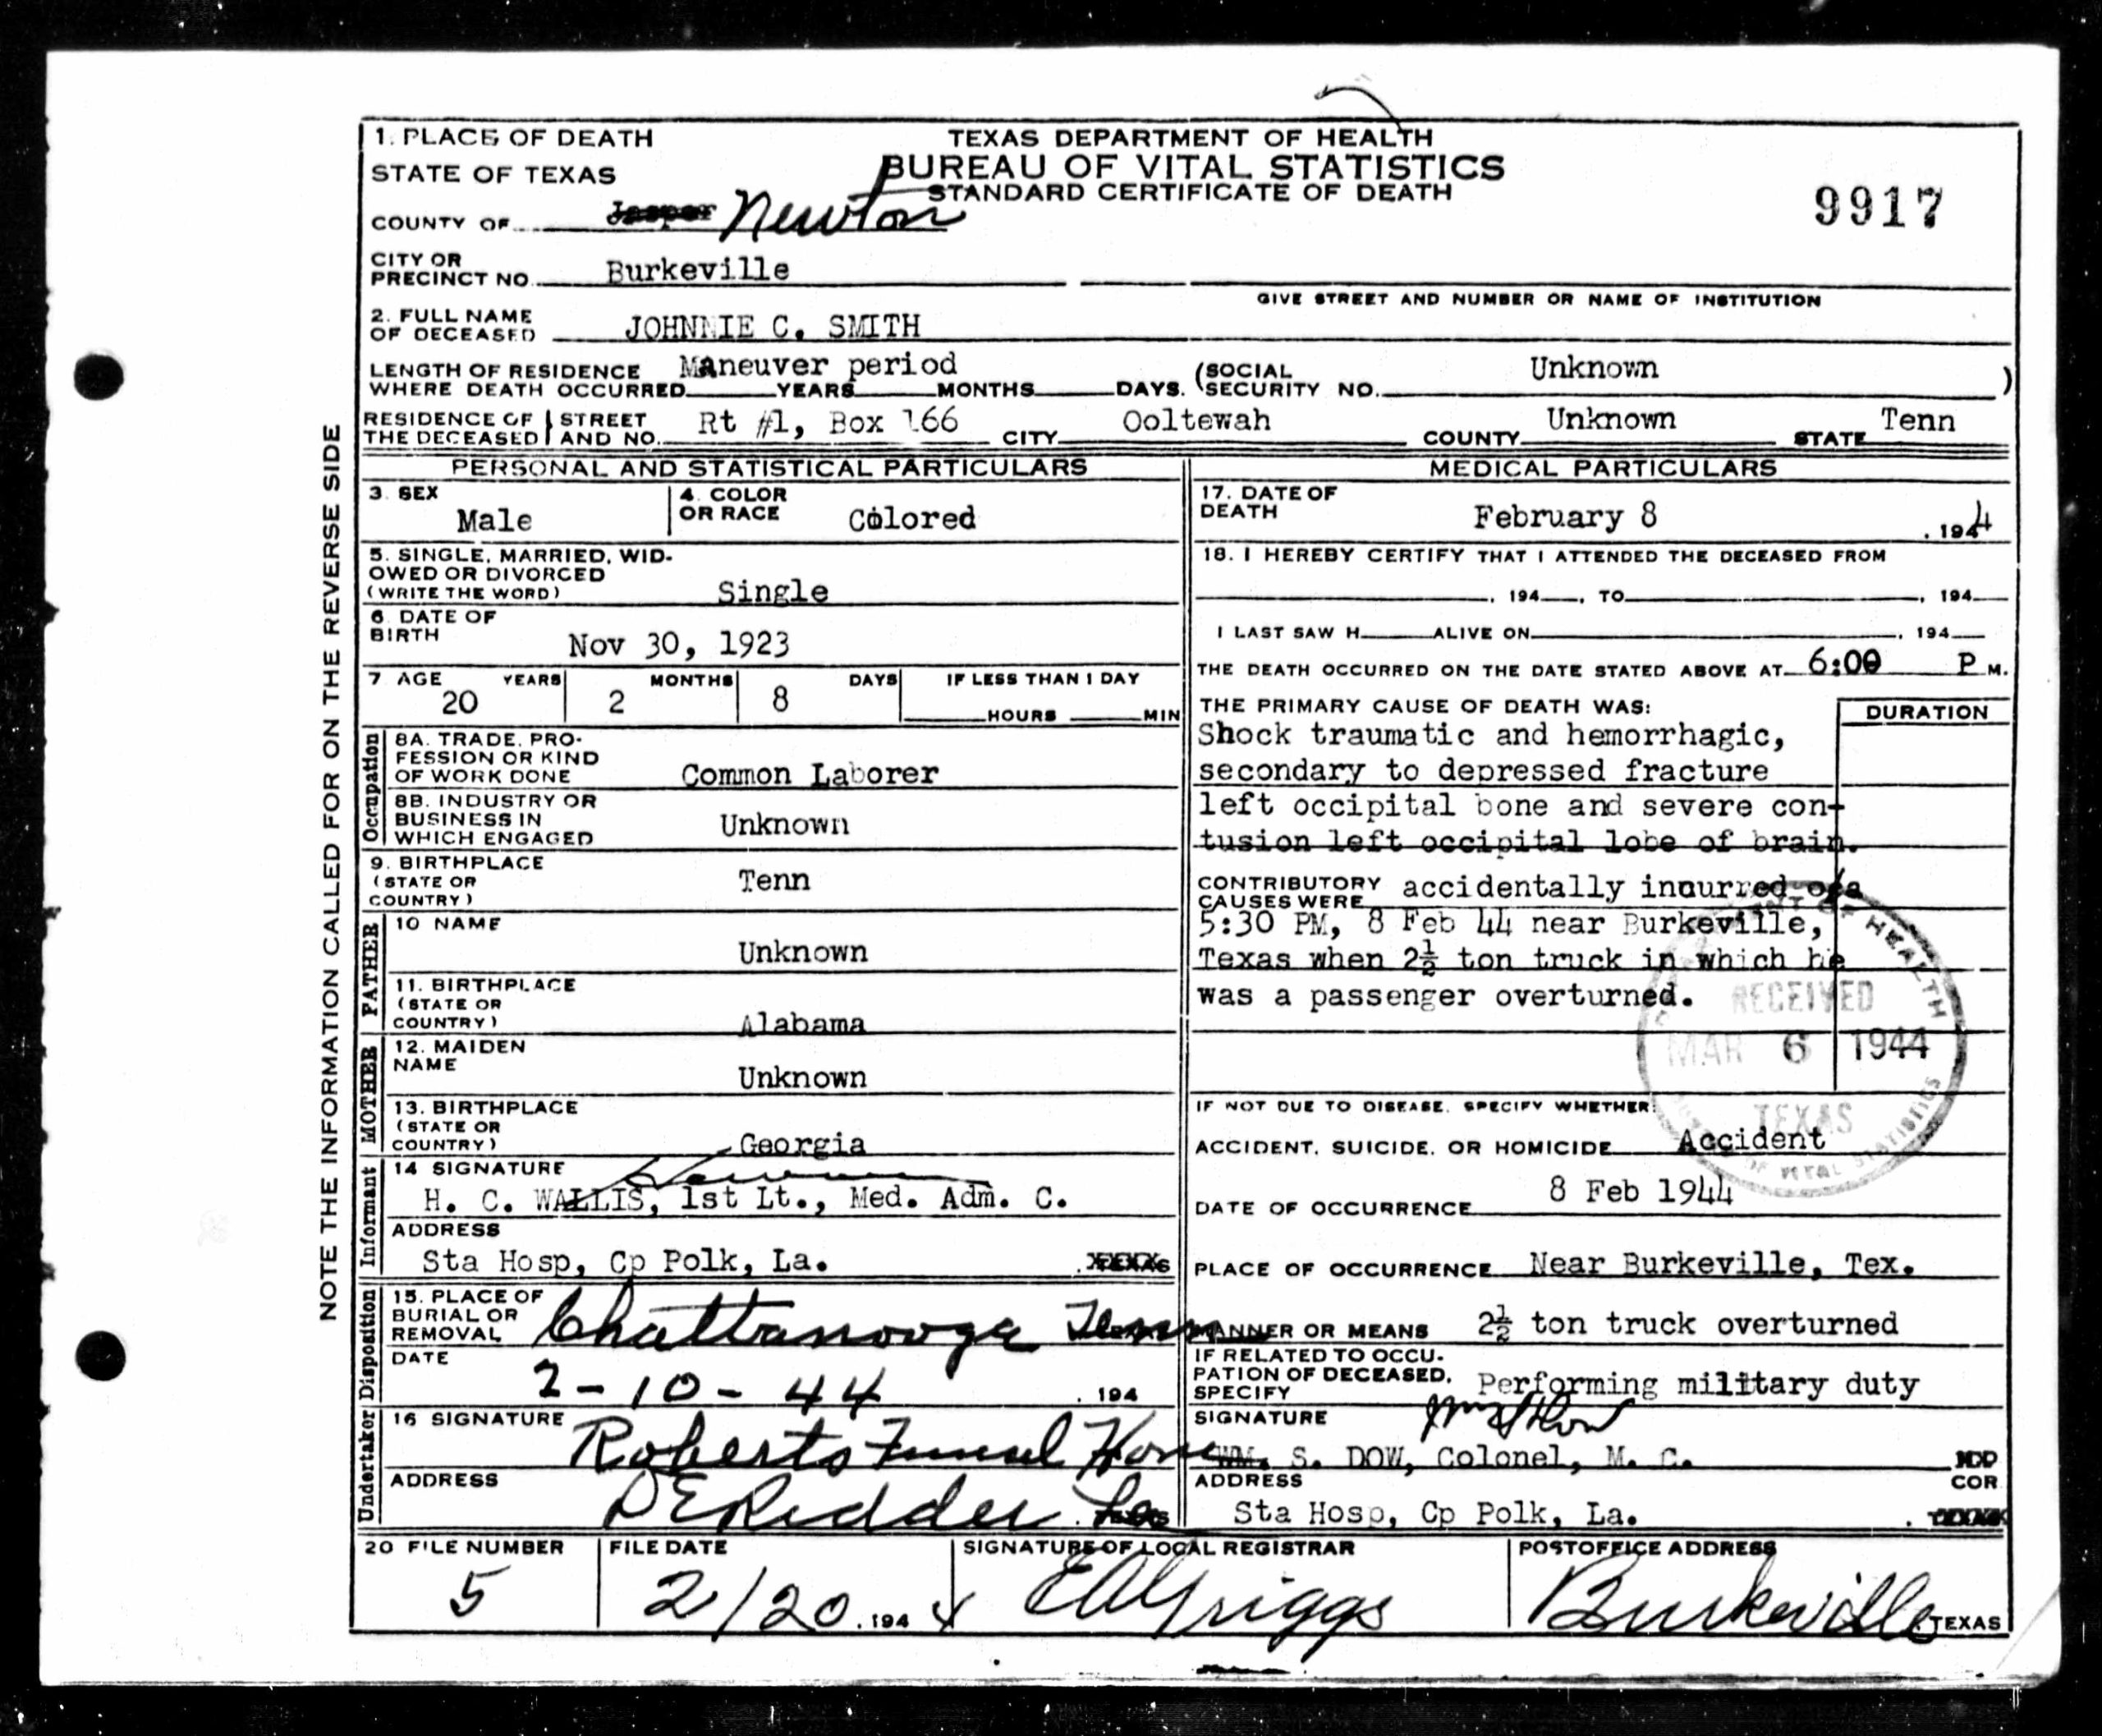 1. PLACE OF DEATH
STATE OF TEXAS
TEXAS DEPARTMENT OF HEALTH
BUREAU OF VITAL STATISTICS
STANDARD CERTIFICATE OF DEATH
9917
COUNTY OF Jasper Newton
CITY OR PRECINCT NO. Burkeville
GIVE STREET AND NUMBER OR NAME OF INSTITUTION
2. FULL NAME OF DECEASED JOHNNIE C. SMITH
LENGTH OF RESIDENCE WHERE DEATH OCCURRED Maneuver period YEARS MONTHS DAYS. (SOCIAL SECURITY NO. Unknown )
RESIDENCE OF THE DECEASED STREET AND NO. Rt #1, Box 166 CITY Ooltewah COUNTY Unknown STATE Tenn
NOTE THE INFORMATION CALLED FOR ON THE REVERSE SIDE
PERSONAL AND STATISTICAL PARTICULARS
3. SEX Male
4. COLOR OR RACE Colored
5. SINGLE, MARRIED, WID-
OWED OR DIVORCED
(WRITE THE WORD) Single
6. DATE OF BIRTH Nov 30, 1923
7 AGE YEARS MONTHS DAYS IF LESS THAN 1 DAY
20 2 8 HOURS MIN
Occupation
8A. TRADE, PRO-
FESSION OR KIND
OF WORK DONE Common Laborer
8B. INDUSTRY OR
BUSINESS IN
WHICH ENGAGED Unknown
9. BIRTHPLACE
(STATE OR
COUNTRY) Tenn
FATHER
10 NAME Unknown
11. BIRTHPLACE
(STATE OR
COUNTRY) Alabama
MOTHER
12. MAIDEN
NAME Unknown
13. BIRTHPLACE
(STATE OR
COUNTRY) Georgia
Informant
14 SIGNATURE
H. C. WALLIS, 1st Lt., Med. Adm. C.
ADDRESS
Sta Hosp, Cp Polk, La.
Disposition
15. PLACE OF
BURIAL OR
REMOVAL Chattanooga Tenn
DATE 2-10-44 , 194
Undertaker
16 SIGNATURE Roberts Funeral Home
ADDRESS DeRidder La
MEDICAL PARTICULARS
17. DATE OF DEATH February 8 , 1944
18. I HEREBY CERTIFY THAT I ATTENDED THE DECEASED FROM
, 194 , TO , 194
I LAST SAW H ALIVE ON , 194
THE DEATH OCCURRED ON THE DATE STATED ABOVE AT 6:00 P M.
THE PRIMARY CAUSE OF DEATH WAS: DURATION
Shock traumatic and hemorrhagic,
secondary to depressed fracture
left occipital bone and severe con-
tusion left occipital lobe of brain.
CONTRIBUTORY CAUSES WERE accidentally incurred oca
5:30 PM, 8 Feb 44 near Burkeville,
Texas when 2½ ton truck in which he
was a passenger overturned.
OF HEALTH
RECEIVED
MAR 6 1944
TEXAS
OF VITAL STATISTICS
IF NOT DUE TO DISEASE, SPECIFY WHETHER:
ACCIDENT, SUICIDE, OR HOMICIDE Accident
DATE OF OCCURRENCE 8 Feb 1944
PLACE OF OCCURRENCE Near Burkeville, Tex.
MANNER OR MEANS 2½ ton truck overturned
IF RELATED TO OCCU-
PATION OF DECEASED,
SPECIFY Performing military duty
SIGNATURE Wm S Dow
WM. S. DOW, Colonel, M. C.
COR
ADDRESS
Sta Hosp, Cp Polk, La.
20 FILE NUMBER FILE DATE SIGNATURE OF LOCAL REGISTRAR POSTOFFICE ADDRESS
5 2/20 , 1944 EA Griggs Burkeville TEXAS